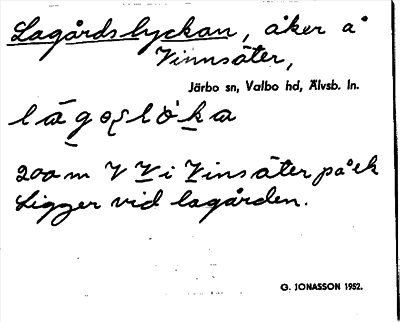 Lagårdslyckan, åker å
Vinnsäter,
Järbo sn, Valbo hd, Älvsb. ln.
200 m V V i Vinsäter på ek
Ligger vid lagården.
G. JONASSON 1952.